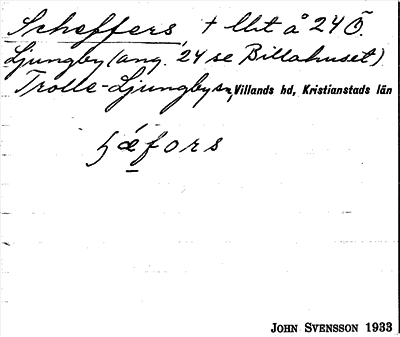 Scheffers, † lht å 24 Ö.
Ljungby (ang. 24 se Billahuset)
Trolle-Ljungby sn, Villands hd, Kristianstads län
ʃǽfors
JOHN SVENSSON 1933